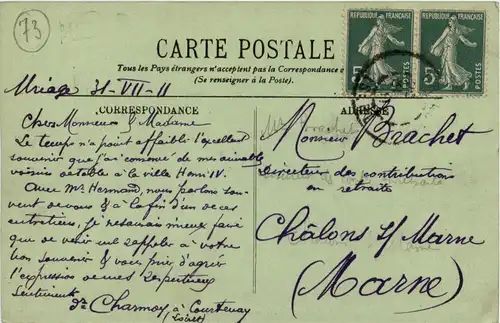 73
CARTE POSTALE
Tous les Pays étrangers n'acceptent pas la Correspondance
(Se renseigner à la Poste).
REPUBLIQUE FRANÇAISE
5c POSTES
REPUBLIQUE FRANÇAISE
5c POSTES
Uriage 31-VII-11
CORRESPONDANCE
Cher Monsieur & Madame
Le temps n'a point affaibli l'excellent
souvenir que j'ai conservé de mes aimables
voisins de table à la ville Henri IV.
Avec Mr. Hermand, nous parlons sou-
vent de vous & à la fin d'un de ces
entretiens, je ne saurais mieux faire
que de venir me rappeler à votre
bon souvenir & vous prier d'agréer
l'expression de mes respectueux
sentiments
Dr Charmoy à Courtenay
(Loiret)
ADRESSE
Monsieur Brachet
Directeur des contributions
en retraite
Châlons s/ Marne
(Marne)